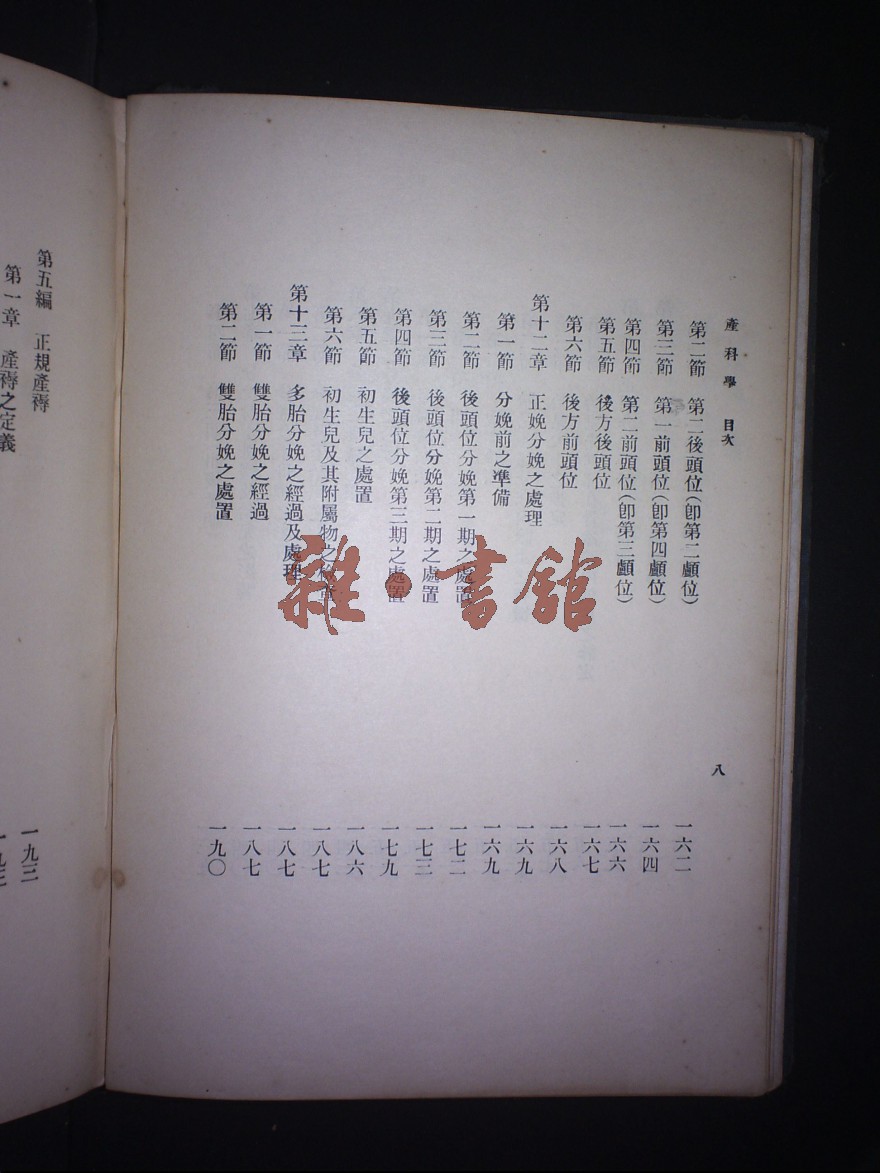 產科學 目次 八
第二節 第二後頭位(卽第二顱位) 一六二
第三節 第一前頭位(卽第四顱位) 一六四
第四節 第二前頭位(卽第三顱位) 一六六
第五節 後方後頭位 一六七
第六節 後方前頭位 一六八
第十二章 正娩分娩之處理 一六九
第一節 分娩前之準備 一六九
第二節 後頭位分娩第一期之處置 一七二
第三節 後頭位分娩第二期之處置 一七三
第四節 後頭位分娩第三期之處置 一七九
第五節 初生兒之處置 一八六
第六節 初生兒及其附屬物之 一八七
第十三章 多胎分娩之經過及處理 一八七
第一節 雙胎分娩之經過 一八七
第二節 雙胎分娩之處置 一九〇
第五編 正規產褥 一九三
第一章 產褥之定義 一九三
雜·書館